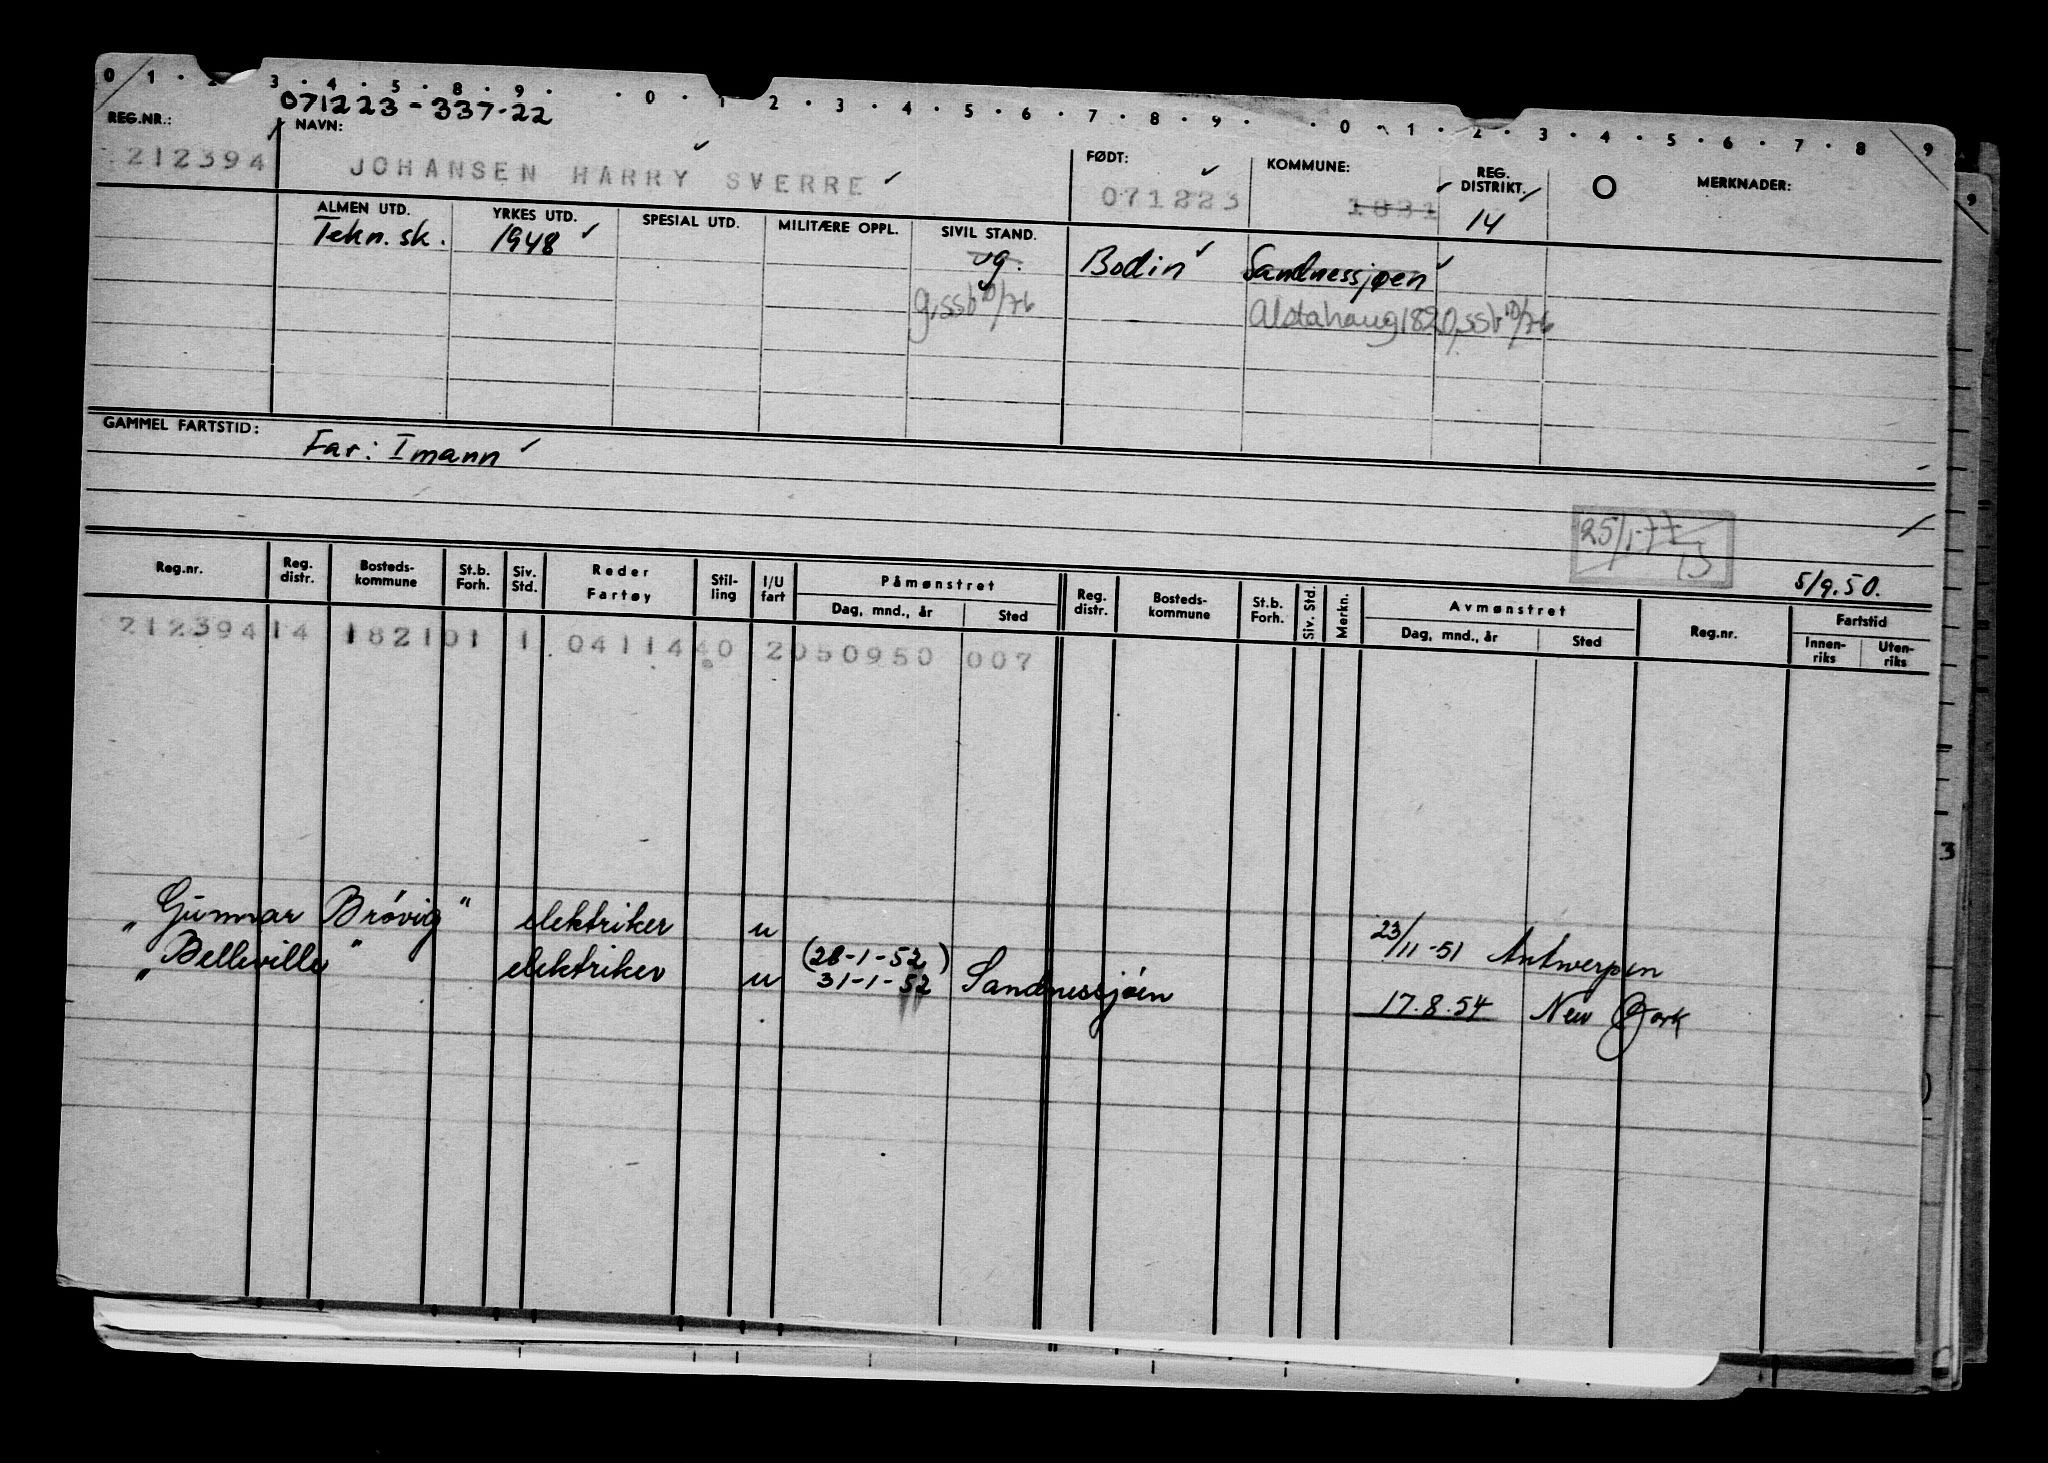 0 1 2 3 4 5 8 9 0 1 2 3 4 5 6 7 8 9 0 1 2 3 4 5 6 7 8 9
071223-337-22
REG.NR.: NAVN: FØDT: KOMMUNE: REG. DISTRIKT. MERKNADER:
212394 JOHANSEN HARRY SVERRE 071223 14
ALMEN UTD. YRKES UTD. SPESIAL UTD. MILITÆRE OPPL. SIVIL STAND.
Tekn. sk. 1948 ug. Bodin Sandnessjøen
g, ssb 10/76 Alstahaug 1820, ssb 10/76
GAMMEL FARTSTID:
Far: Imann
25/1-77
5/9.50.
Reg.nr. Reg. distr. Bosteds-kommune St.b. Forh. Siv. Std. Reder Fartøy Stil-ling I/U fart Påmønstret Reg. distr. Bosteds-kommune St.b. Forh. Siv. Std. Merkn. Avmønstret Reg.nr. Fartstid
Dag, mnd., år Sted Dag, mnd., år Sted Innen-riks Uten-riks
212394 14 1821 01 1 0411440 2 050950 007
"Gunnar Brøvig" elektriker u 23/11-51 Antwerpen
(28-1-52)
"Belleville" elektriker u 31-1-52 Sandnessjøen 17.8.54 New York
3